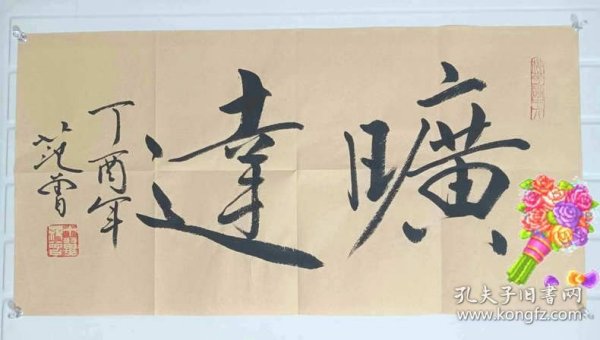 曠達
丁酉年
范曾
孔夫子旧書网
www.kongfz.com